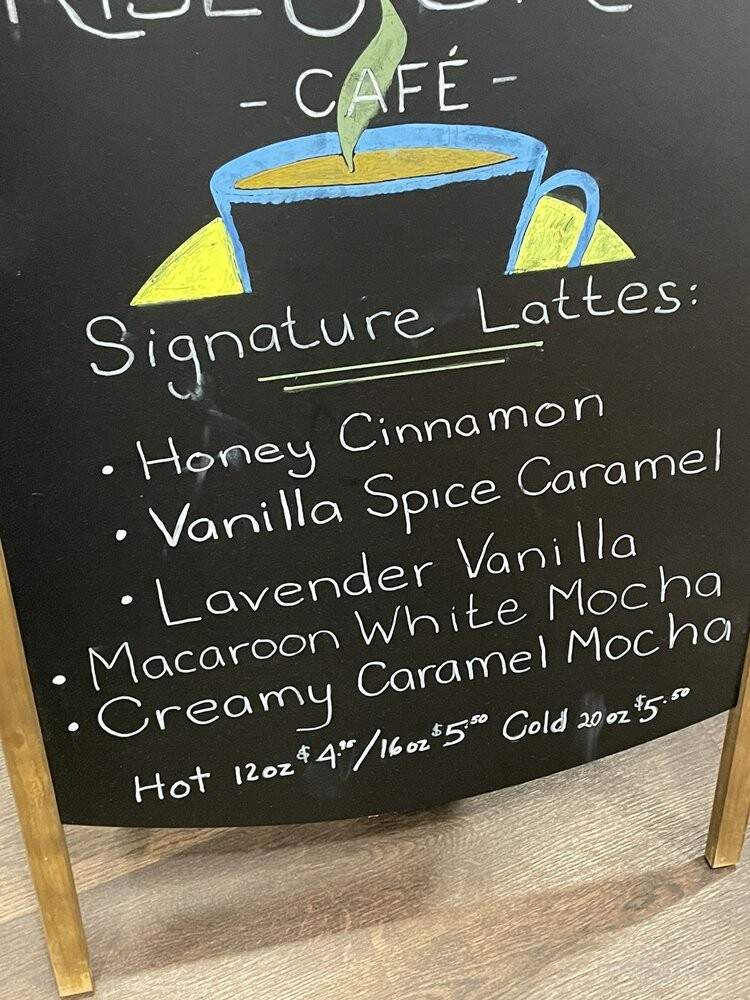 - CAFÉ -
Signature Lattes:
• Honey Cinnamon
• Vanilla Spice Caramel
• Lavender Vanilla
• Macaroon White Mocha
• Creamy Caramel Mocha
Hot 12oz /16oz $5.50 Cold 20oz $5.50